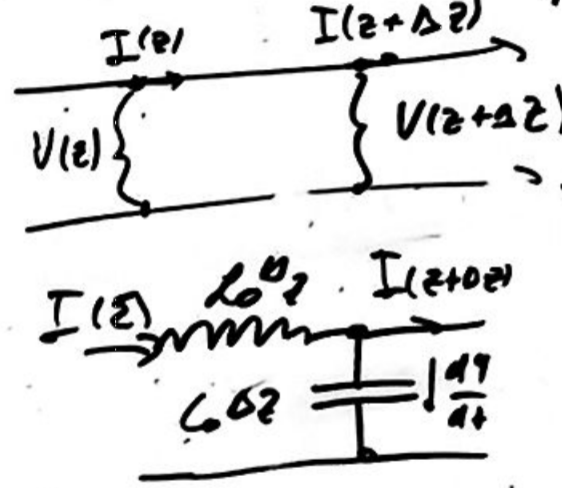 I(z) I(z+Δz)
V(z) V(z+Δz)
L₀Δz
I(z) I(z+Δz)
C₀Δz dq/dt